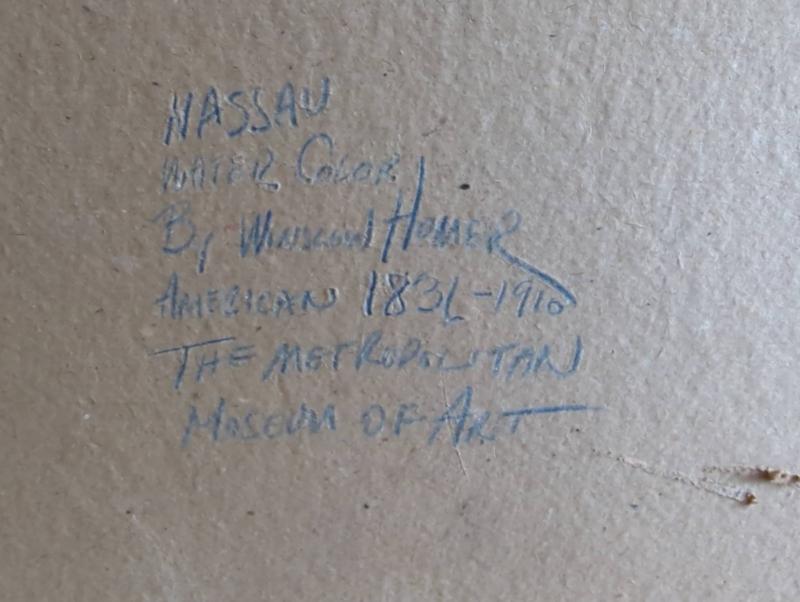 NASSAU
WATER COLOR
By WINSLOW HOMER
AMERICAN 1836-1910
THE METROPOLITAN
MUSEUM OF ART